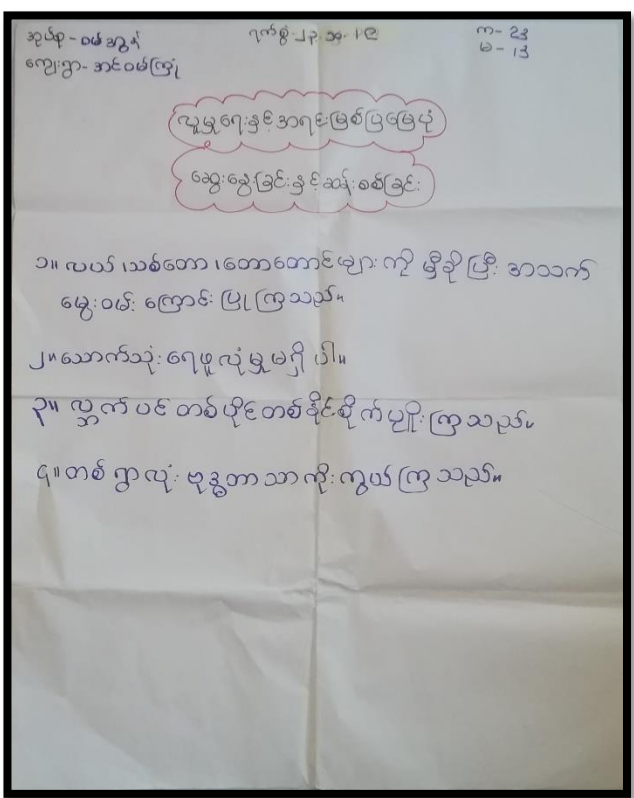 အုပ်စု - ဝမ်အွန် ရက်စွဲ - ၂၃.၁၁.၁၉ က– 23
ကျေးရွာ - အင်ဝမ်ကြုံ မ – ၁၃
လူမှုရေးနှင့်အရင်းမြစ်ပြမြေပုံ
ဆွေးနွေးခြင်းနှင့်ဆန်းစစ်ခြင်း
၁။ လယ်၊သစ်တော၊တောတောင်များကို မှီခိုပြီး အသက်
မွေးဝမ်းကြောင်းပြုကြသည်။
၂။ သောက်သုံးရေဖူလုံမှုမရှိပါ။
၃။ လ္ဘက်ပင်တစ်ပိုင်တစ်နိုင်စိုက်ပျိုးကြသည်။
၄။ တစ်ရွာလုံးဗုဒ္ဓဘာသာကိုးကွယ်ကြသည်။